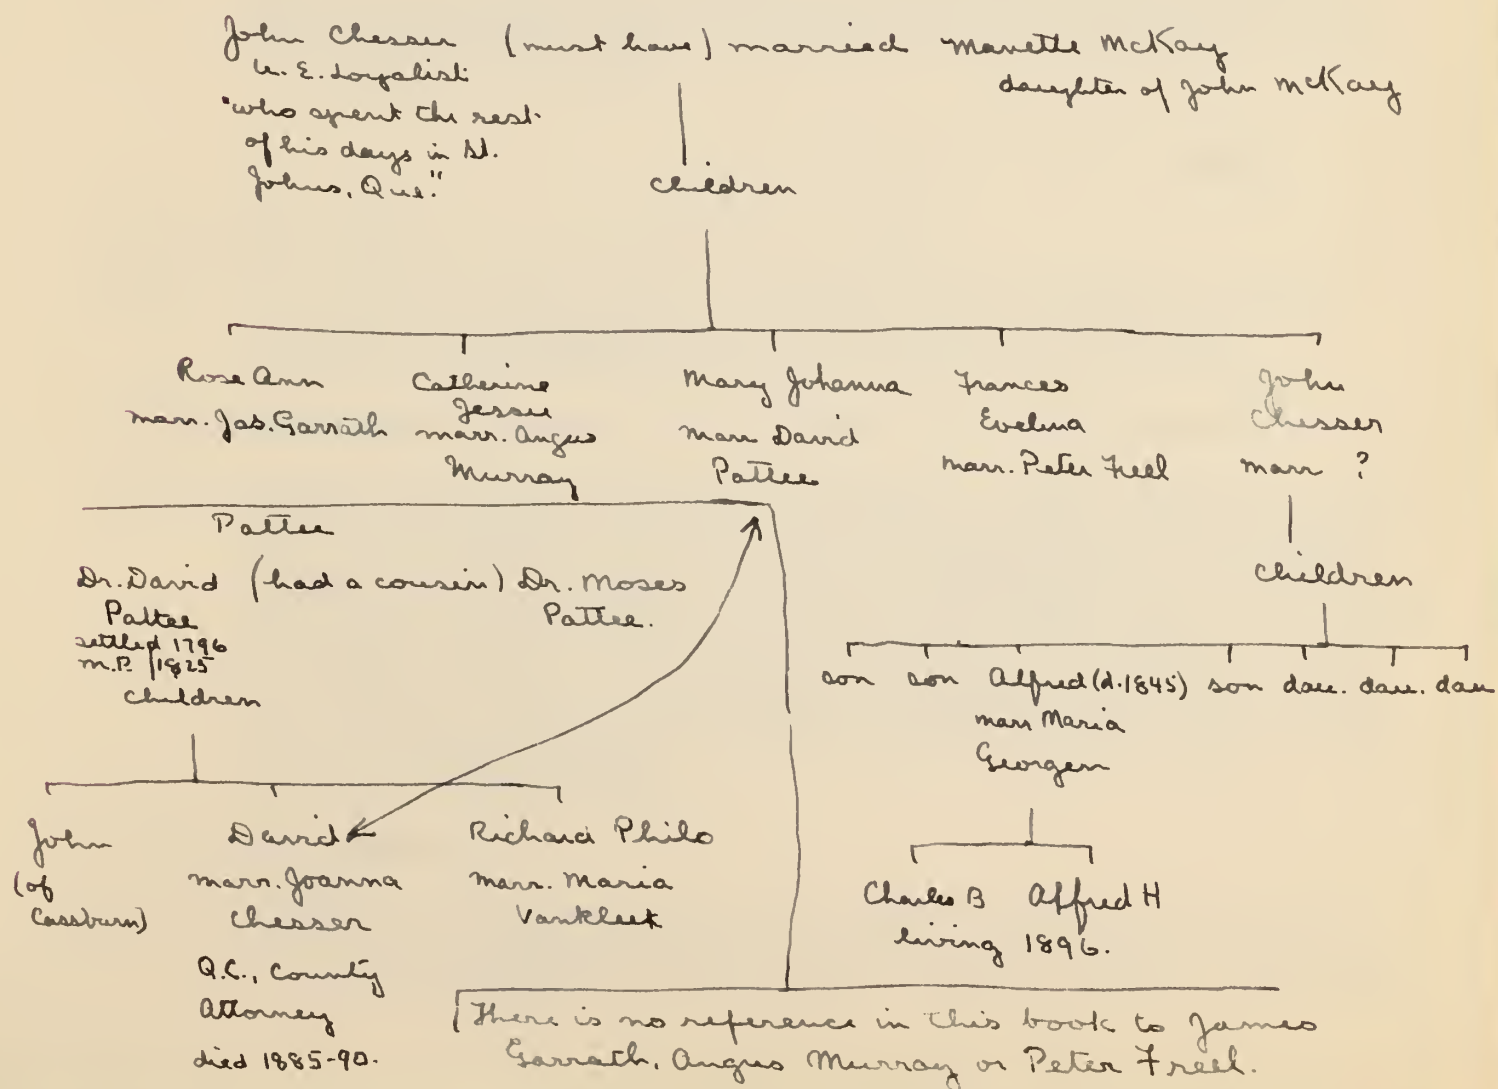 John Chesser (must have) married Manette McKay
U. E. Loyalist
daughter of John McKay
"who spent the rest
of his days in St.
Johns, Que."
children
Rose Ann
marr. Jas. Garrath
Catherine
Jessie
marr. Angus
Murray
Mary Johanna
marr David
Pattee
Frances
Evelina
marr. Peter Freel
John
Chesser
marr ?
children
son son Alfred (d. 1845) son dau. dau. dau
marr Maria
Georgen
Charles B Alfred H
living 1896.
Pattee
Dr. David (had a cousin) Dr. Moses
Pattee Pattee.
settled 1796
M.P. 1825
children
John
(of
Cassburn)
David
marr. Joanna
Chesser
Q.C., County
Attorney
died 1885-90.
Richard Philo
marr. Maria
Vankleek
There is no reference in this book to James
Garrath, Angus Murray or Peter Freel.